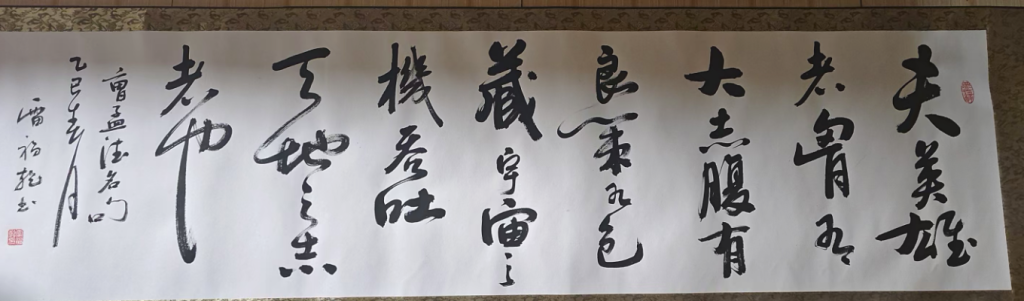 夫英雄
者胷有
大志腹有
良策有包
藏宇宙之
機吞吐
天地之志
者也
曹孟德名句
乙巳春月
福书